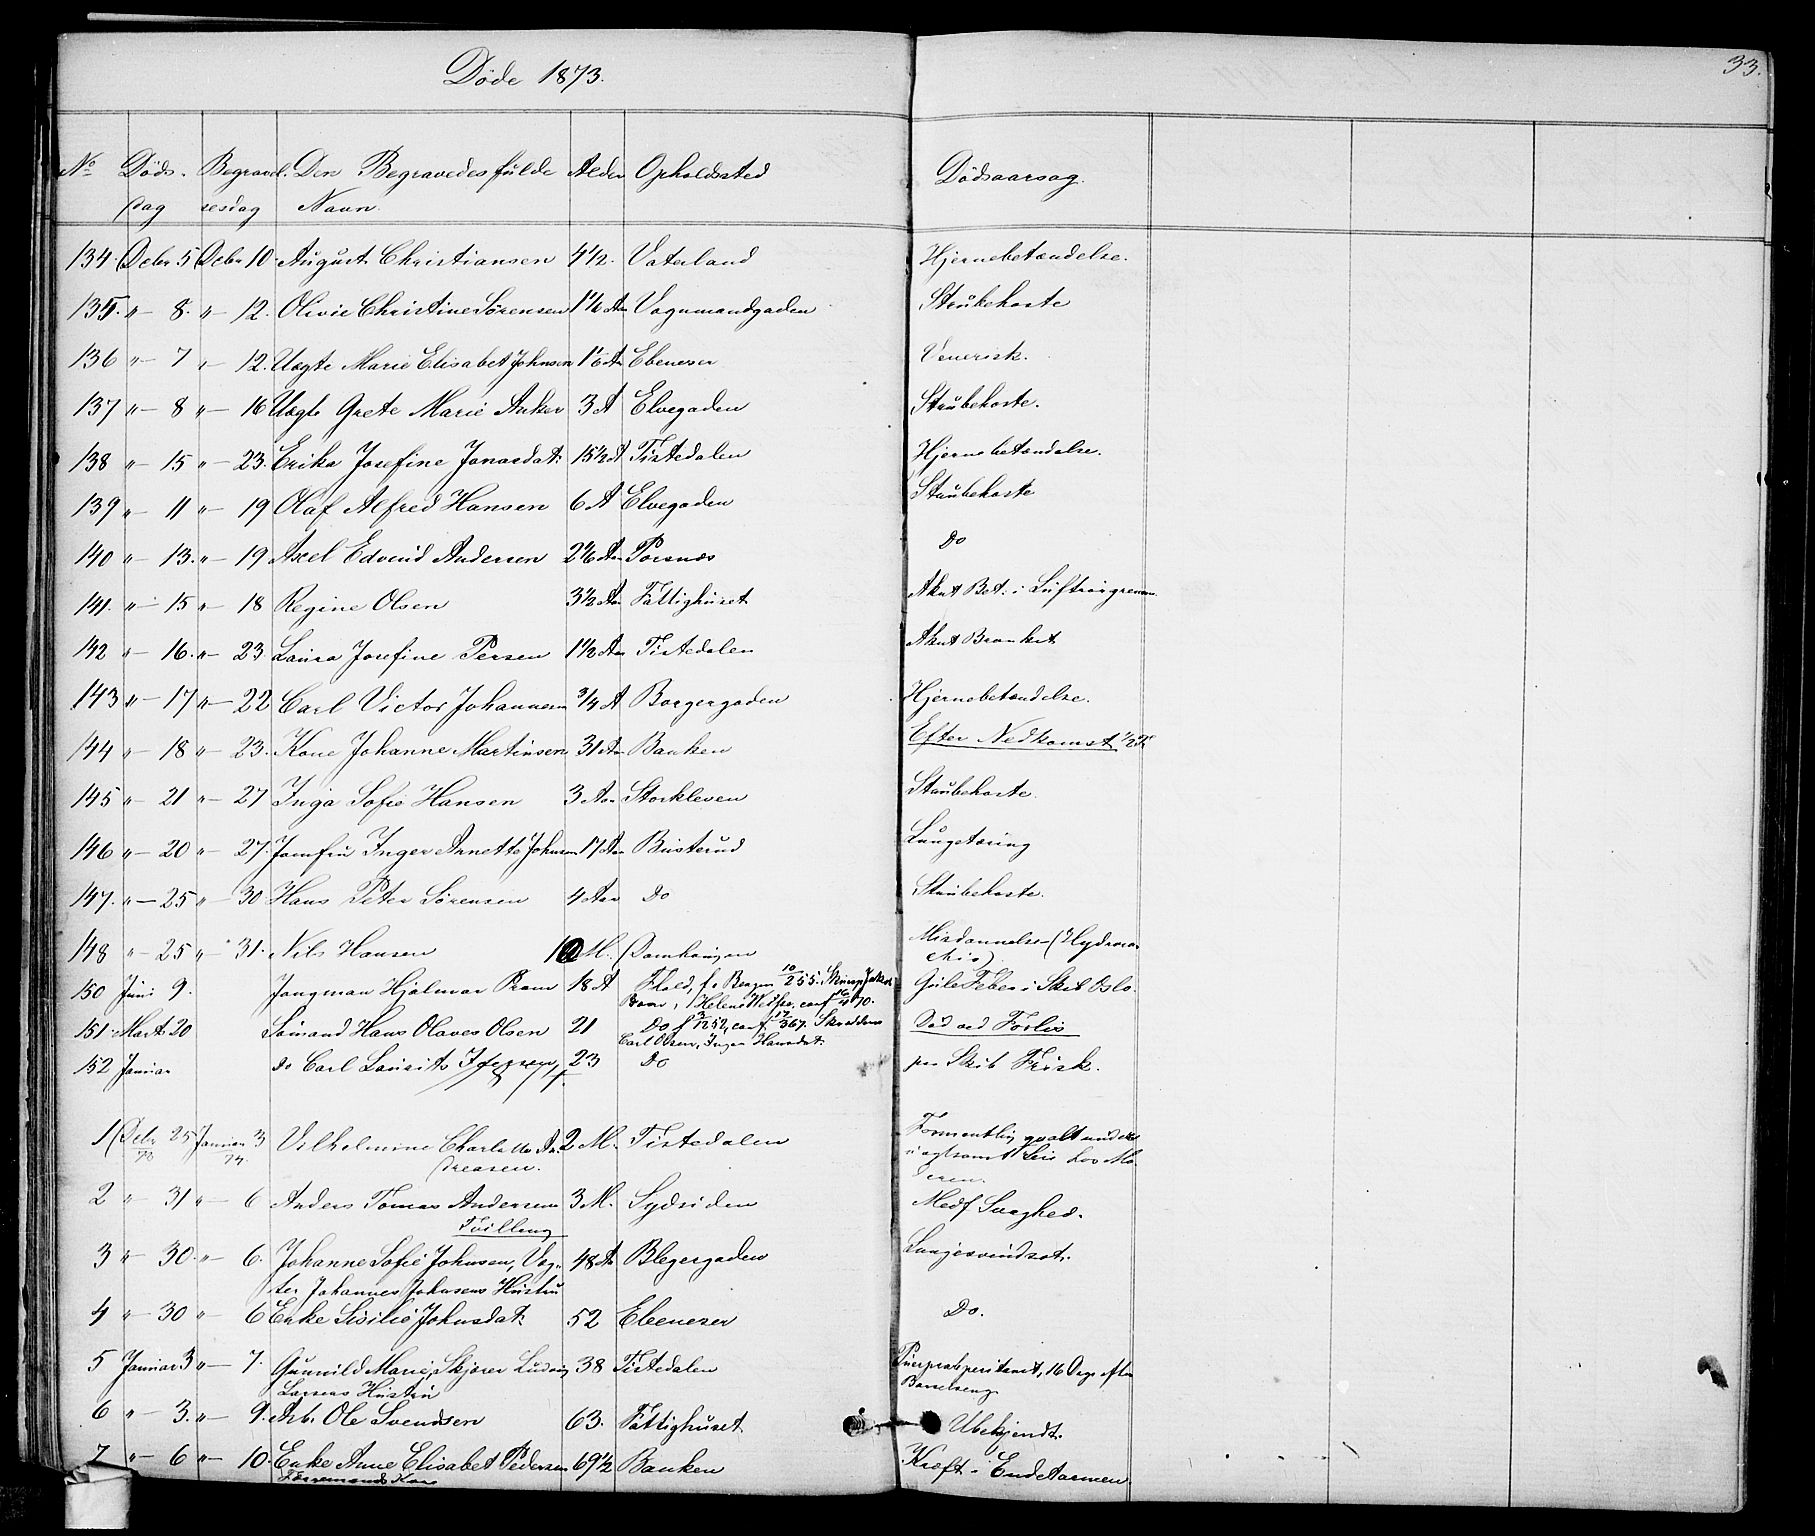 Døde 1873.
33.
No Døds- Begravel- Den Begravedes fulde Alder Opholdssted Dødsaarsag.
dag sesdag Navn.
134. Decbr 5 Decbr 10. August Christiansen 4 1/2. Vaterland Hjernebetændelse.
135. " — 8. " — 12. Olivie Christine Sørensen Vognmandgaden Strubehoste
136 " — 7 " — 12. Uægte Marie Elisabet Johnsen Ebeneser Venerisk.
137 " — 8 " — 16 Uægte Grete Marie Anker 3 A Elvegaden Strubehoste.
138 " — 15 " — 23. Erika Josefine Jonasdat: 15 1/2 A Tistedalen Hjernebetændelse.
139 " — 11 " — 19 Olaf Alfred Hansen 6 A Elvegaden Strubehoste
140 " — 13. " — 19 Axel Edvind Andersen Porsnæs Do
141. " — 15 " — 18 Regine Olsen 3 1/2 Aar Fattighuset Akut Bet. i Luftrørgrenene
142 " — 16. " — 23 Laura Josefine Persen 1 1/2 Aar Tistedalen Akut Bronkit
143 " — 17 " — 22 Carl Victor Johannesen 3/4 A Borgergaden Hjernebetændelse.
144 " — 18 " — 23. Kone Johanne Martinsen 31 Aar Banken Efter Nedkomst
145 " — 21 " — 27 Inga Sofie Hansen 3 Aar Storkleven Strubehoste.
146 " — 20 " — 27. Jomfru Inger Annette Johnsen 17 Aar Busterud Lungetæring
147. " — 25 " — 30 Hans Peter Sørensen 4 Aar Do Strubehoste.
148 " — 25 " — 31. Nils Hansen M. Damhaugen Misdannelse (Hydrora-
chis).
150 Juni 9. Jungman Hjalmar Bram 18 A Fhald, f. Bergen 10/2 55. Skinsp Jakob Gule Feber i Skib Oslo.
Bram, Helene conf 70.
151. Mart. 20 Sømand Hans Olaves Olsen 21 Do f 3/12 52, conf. 17/3 67. Skrædder Død ved Forlis
Carl Olsen, Inger Hansdat:
152 Januar do Carl Laurits 23 Do paa Skib Frisk.
1 Decbr 25 Januar 3 Vilhelmine Charlotte An- 2 M. Tistedalen Formentlig qvalt under
/73 /74. dreasen. uagtsomt Leie hos Mo-
deren.
2 " 31 " — 6 Anders Tomas Andersen 3 M. Sydsiden Medf Svaghed.
Tvilling
3 " — 30. " — 6. Johanne Sofie Johnsen, Væg- 48 A Blegergaden Lungesvindsot.
ter Johannes Johnsens Hustru
4 " — 30 " — 6 Enke Sisilie Johnsdat: 52 Ebeneser Do.
5 Januar 3 " — 7. Gunnild Marie, Skjører Ludvig 38 Tistedalen Puerpralperitonit, 16 Dage efter
Larsens Hustru Barselseng
6 " — 3. " — 9. Arb. Ole Svendsen 63. Fattighuset Ubekjendt.
7 " — 6 " — 10. Enke Anne Elisabet Pedersen 69 1/2 Banken Kræft i Endetarmen.
Kone